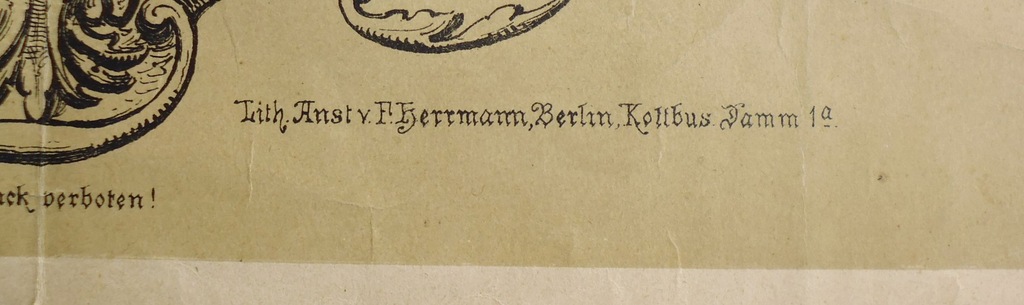 Lith. Anst v. F. Herrmann, Berlin, Kottbus. Damm 1a.
ck verboten!